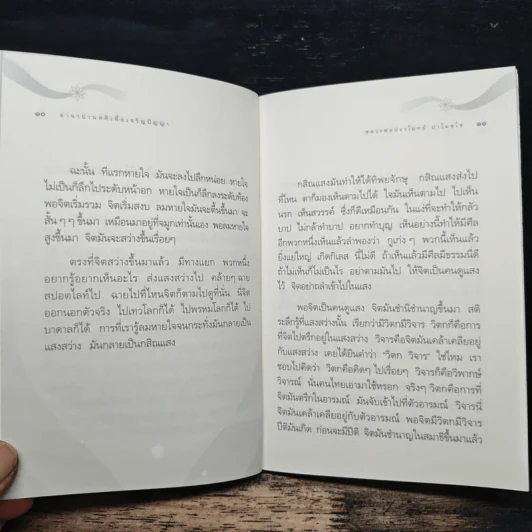 ๑๐ อานาปานสติเพื่อเจริญปัญญา
ฉะนั้น ทีแรกหายใจ มันจะลงไปลึกหน่อย หายใจ
ไม่เป็นก็ลึกไประดับหน้าอก หายใจเป็นก็ลึกลงระดับท้อง
พอจิตเริ่มรวม จิตเริ่มสงบ ลมหายใจมันจะตื้นขึ้นมา จะ
สั้น ๆ ๆ ขึ้นมา เหมือนมาอยู่ที่จมูกเท่านั้นเอง พอลมหายใจ
สูงขึ้นมา จิตมันจะสว่างขึ้นเรื่อยๆ
ตรงที่จิตสว่างขึ้นมาแล้ว มีทางแยก พวกหนึ่ง
อยากรู้อยากเห็นอะไร ส่งแสงสว่างไป คล้ายๆ ฉาย
สปอตไลท์ไป ฉายไปที่ไหนจิตก็ตามไปดูที่นั่น นี่จิต
ออกนอกตัวจริง ไปเทวโลกก็ได้ ไปพรหมโลกก็ได้ ไป
บาดาลก็ได้ การที่เรารู้ลมหายใจจนกระทั่งมันกลายเป็น
แสงสว่าง มันกลายเป็นกสิณแสง
หลวงพ่อปราโมทย์ ปาโมชฺโช ๑๑
กสิณแสงมันทำให้ได้ทิพยจักษุ กสิณแสงส่งไป
ที่ไหน ตาก็มองเห็นตามไปได้ ใจมันเห็นตามไป ไปเห็น
นรก เห็นสวรรค์ ซึ่งก็ดีเหมือนกัน ในแง่ที่จะทำให้กลัว
บาป ไม่กล้าทำบาป อยากทำบุญ เห็นอย่างนี้ทำให้มีศีล
อีกพวกหนึ่งเห็นแล้วลำพองว่า กูเก่ง ๆ พวกนี้เห็นแล้ว
ยิ่งแย่ใหญ่ เกิดกิเลส นี่ไม่ดี ถ้าเห็นแล้วมีศีลมีธรรมนี้ดี
ถ้าไม่เห็นก็ไม่เป็นไร อย่าตามมันไป ให้จิตเป็นคนดูแสง
ไว้ จิตอย่าถลำเข้าไปในแสง
พอจิตเป็นคนดูแสง จิตมันชำนิชำนาญขึ้นมา สติ
ระลึกรู้ที่แสงสว่างนั้น เรียกว่ามีวิตกมีวิจาร วิตกก็คือการ
ที่จิตไปตรึกอยู่ในแสงสว่าง วิจารคือจิตมันเคล้าเคลียอยู่
กับแสงสว่าง เคยได้ยินคำว่า “วิตก วิจาร” ใช่ไหม เรา
ชอบไปคิดว่า วิตกคือคิดๆ ไปเรื่อยๆ วิจารก็คือวิพากษ์
วิจารณ์ นั่นคนไทยเอามาใช้หรอก จริงๆ วิตกคือการที่
จิตมันตรึกในอารมณ์ มันจับเข้าไปที่ตัวอารมณ์ วิจารนี่
จิตมันเคล้าเคลียอยู่กับตัวอารมณ์ พอจิตมีวิตกมีวิจาร
ปีติมันเกิด ก่อนจะมีปีติ จิตมันชำนาญในสมาธิขึ้นมาแล้ว